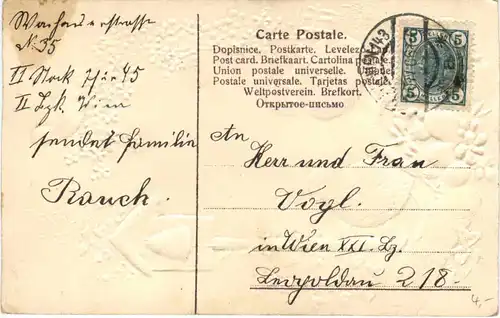 Wachauerstrasse
No 35
II Stock Thür 45
II Bzk. Wien
sendet Familie
Rauch.
Carte Postale.
Dopisnice. Postkarte. Levelez
Post card. Briefkaart. Cartolina postale.
Union postale universelle.
Postale universale. Tarjetas postale
Weltpostverein. Brefkort.
Открытое-письмо
5 5
5 5
An
Herr und Frau
Vogl.
in Wien XXI. Bz.
Leopoldau 218-
4,-